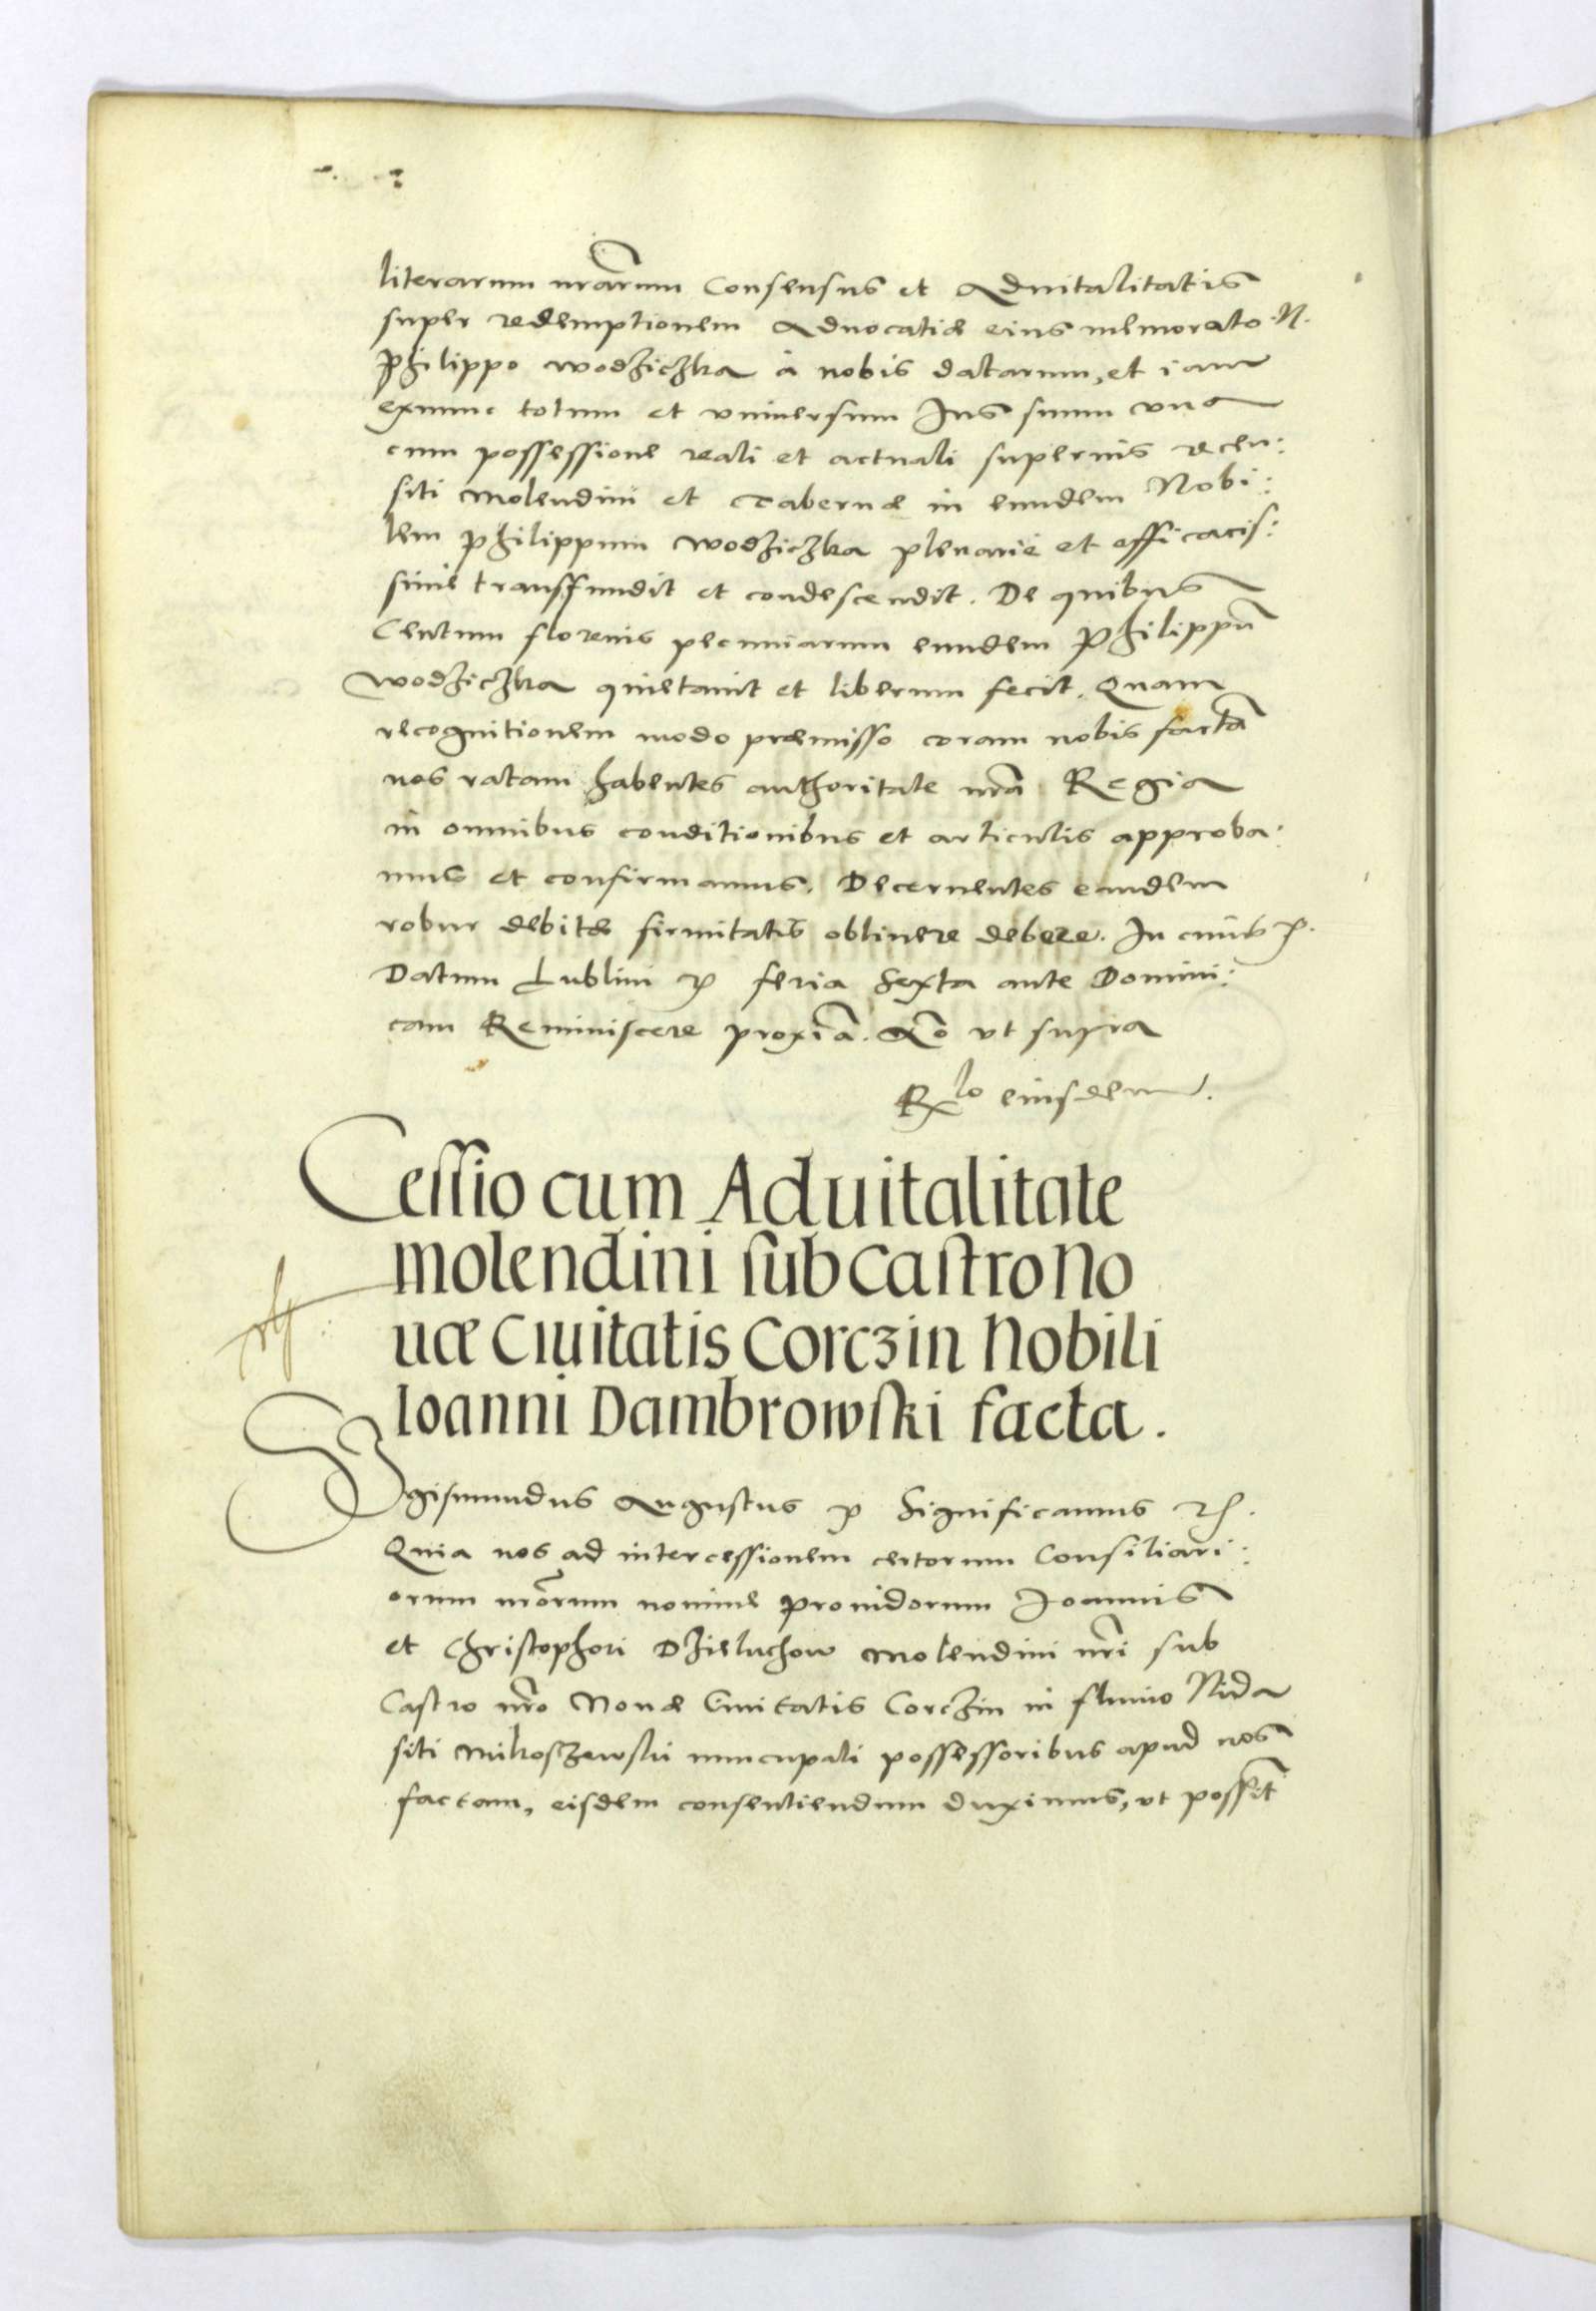 literarum nrarum Consensus et Aduitalitatis
super redemptionem Aduocatiæ eius memorato N.
Philippo Wodziczka à nobis datarum, et iam
exnunc totum et vniuersum Ius suum vna
cum possessione reali et actuali superius recen:
siti Molendini et Tabernæ in eundem Nobi:
lem Philippum Wodziczka plenarie et efficacis:
sime transfundit et condescendit. De quibus
Centum florenis pecuniarum eundem Philippū
Wodziczka quietauit et liberum fecit. Quam
recognitionem modo præmisso coram nobis factā
nos ratam habentes authoritate nrā Regia
in omnibus conditionibus et articulis approba:
mus et confirmamus. Decernentes eandem
robur debitæ firmitatis obtinere debere. In cuius
Datum Lublini feria Sexta ante Domini:
cam Reminiscere proxīa. Ao vt supra
Rlo eiusdem.
Cessio cum Aduitalitate
molendini sub Castro No
uæ Ciuitatis Corczin Nobili
Ioanni Dambrowski facta.
Sigismundus Augustus Significamus
Quia nos ad intercessionem certorum Consiliari:
orum nrorum nomine prouidorum Joannis
et Christophori Dzieluchow Molendini nri sub
Castro nro Nouæ Ciuitatis Corczin in fluuio Nida
siti Mikoszewski nuncupati possessoribus apud nos
factam, eisdem consentiendum duximus, vt possint